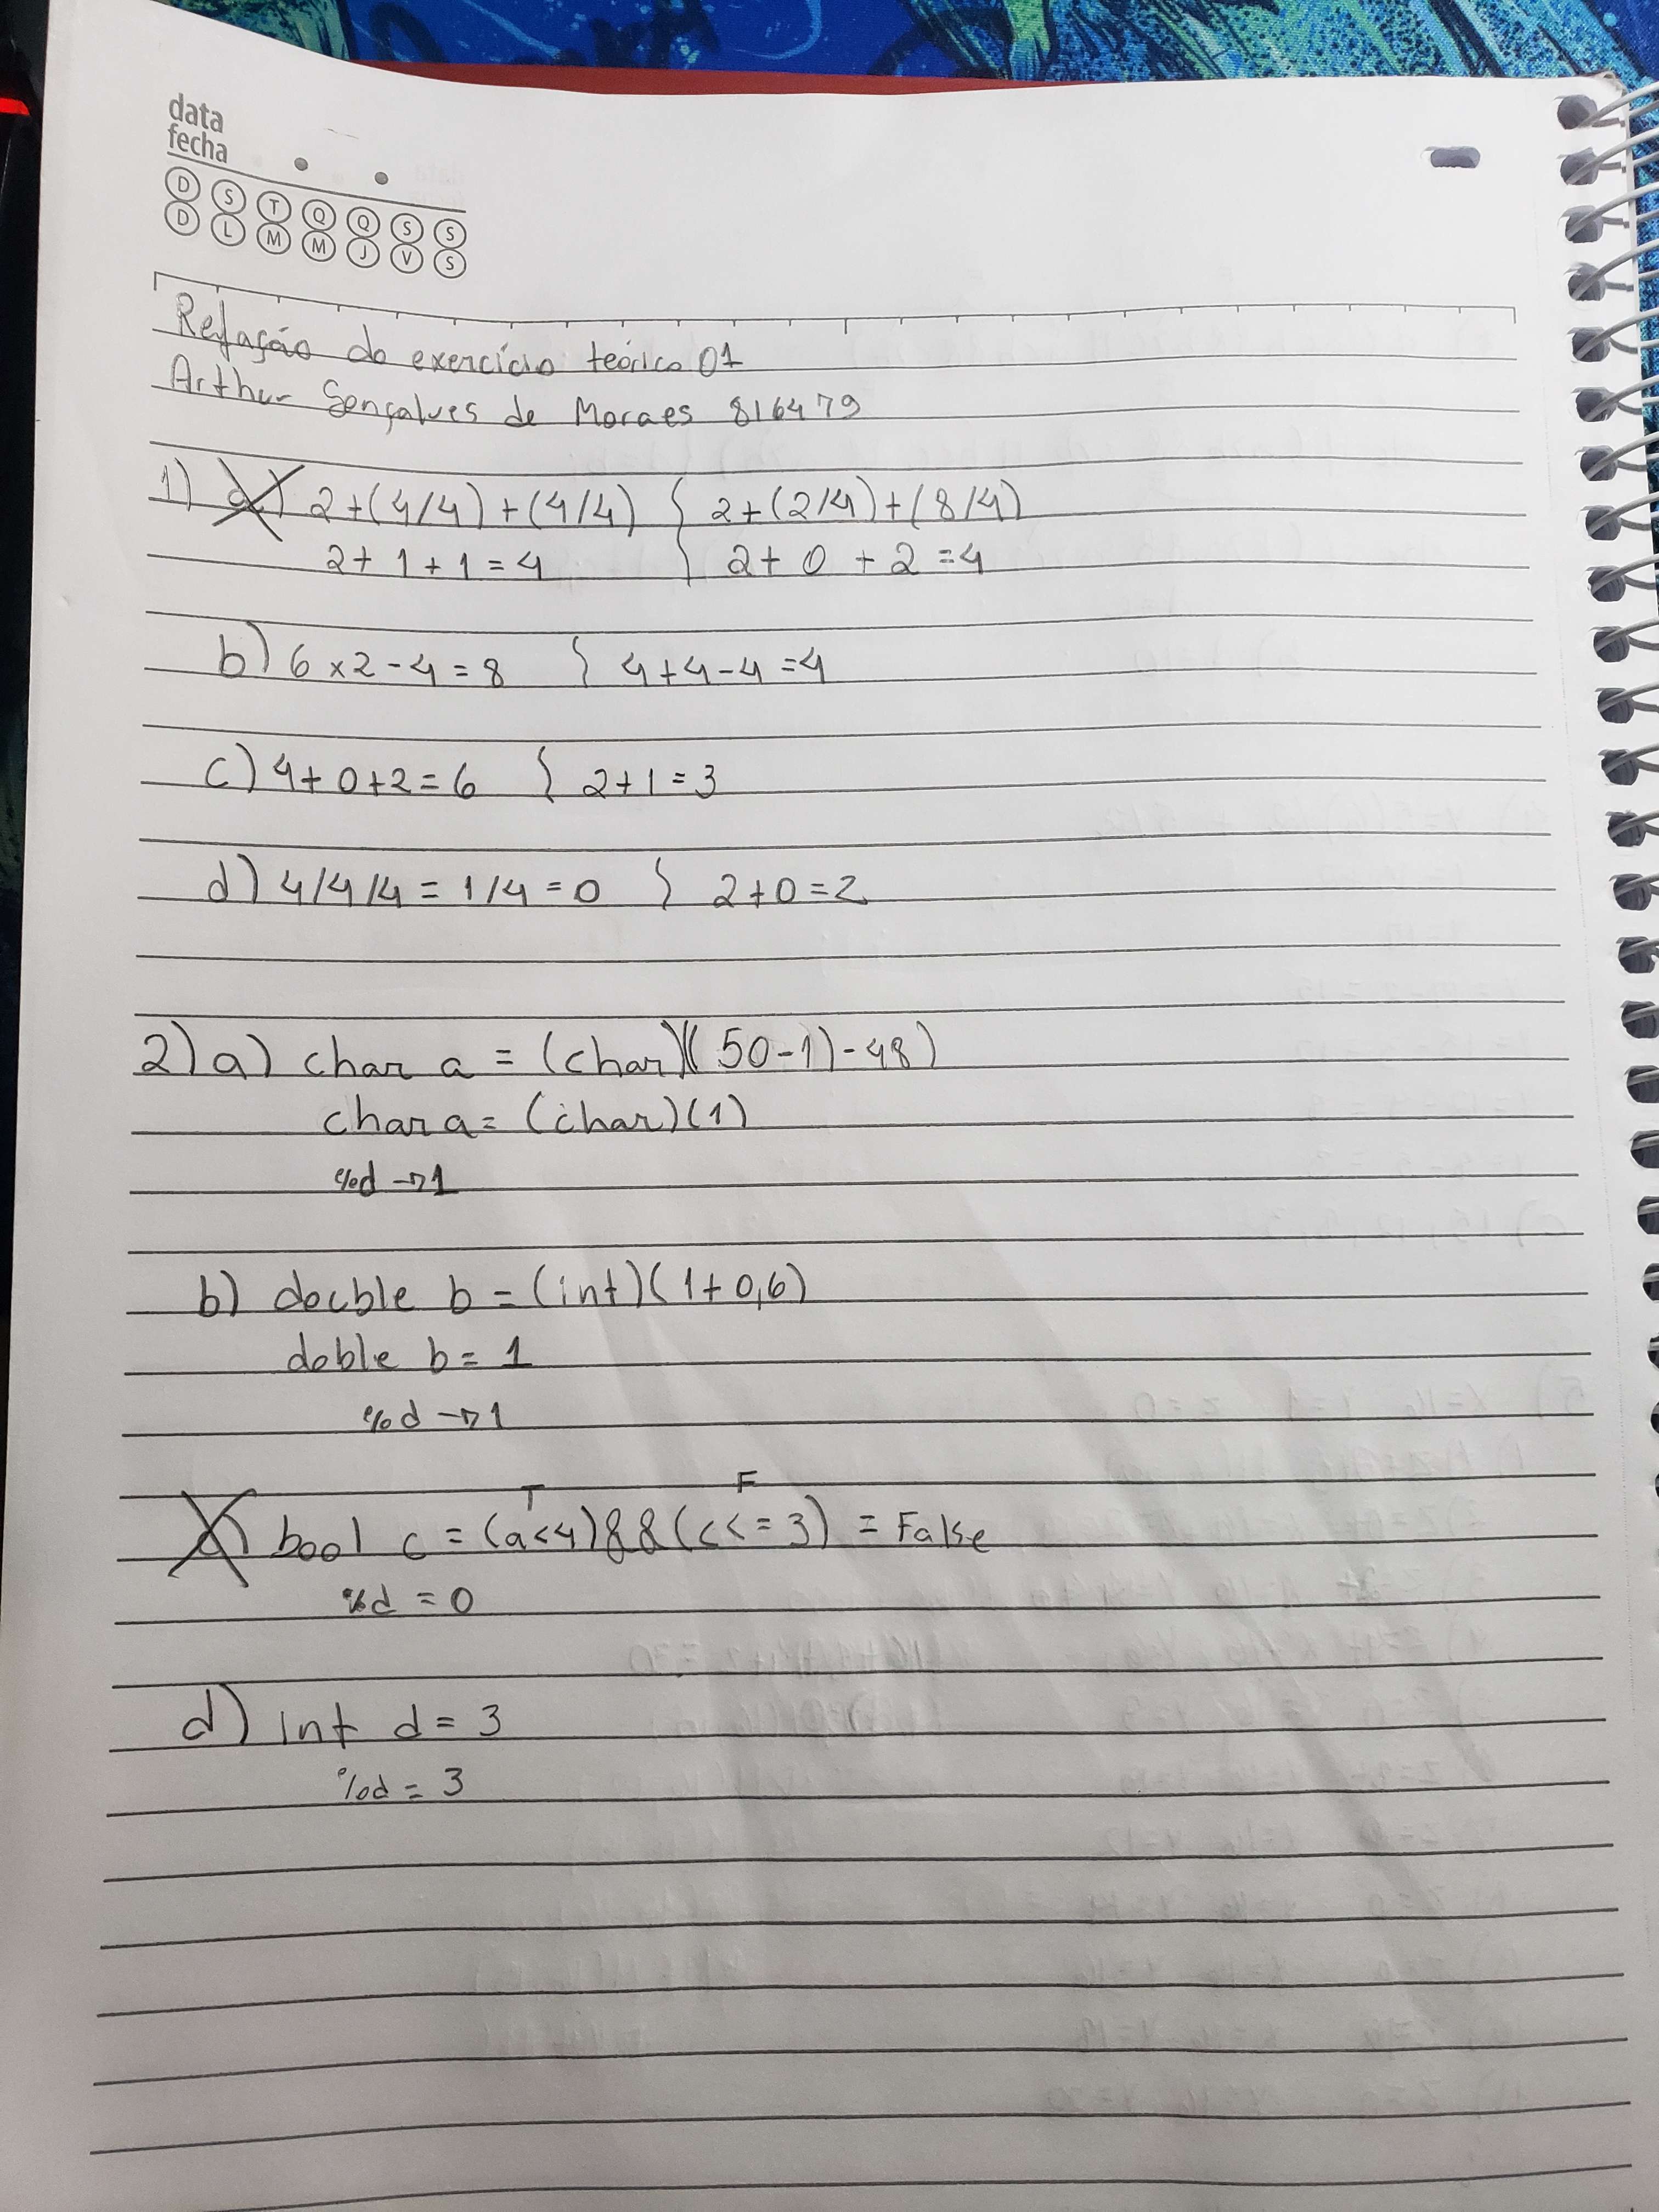 data
fecha
D S T Q Q S S
D L M M J V S
Refação do exercício teórico 01
Arthur Gonçalves de Moraes 816479
1) a) 2+(4/4)+(4/4) } 2+(2/4)+(8/4)
2+1+1=4 } 2+0+2=4
b) 6x2-4=8 } 4+4-4=4
c) 4+0+2=6 } 2+1=3
d) 4/4/4=1/4=0 } 2+0=2
2) a) char a = (char)((50-1)-48)
char a = (char)(1)
%d → 1
b) docble b = (int)(1+0,6)
doble b = 1
%d → 1
T F
c) bool c = (a<4)&&(c<=3) = False
%d = 0
d) int d = 3
%d = 3